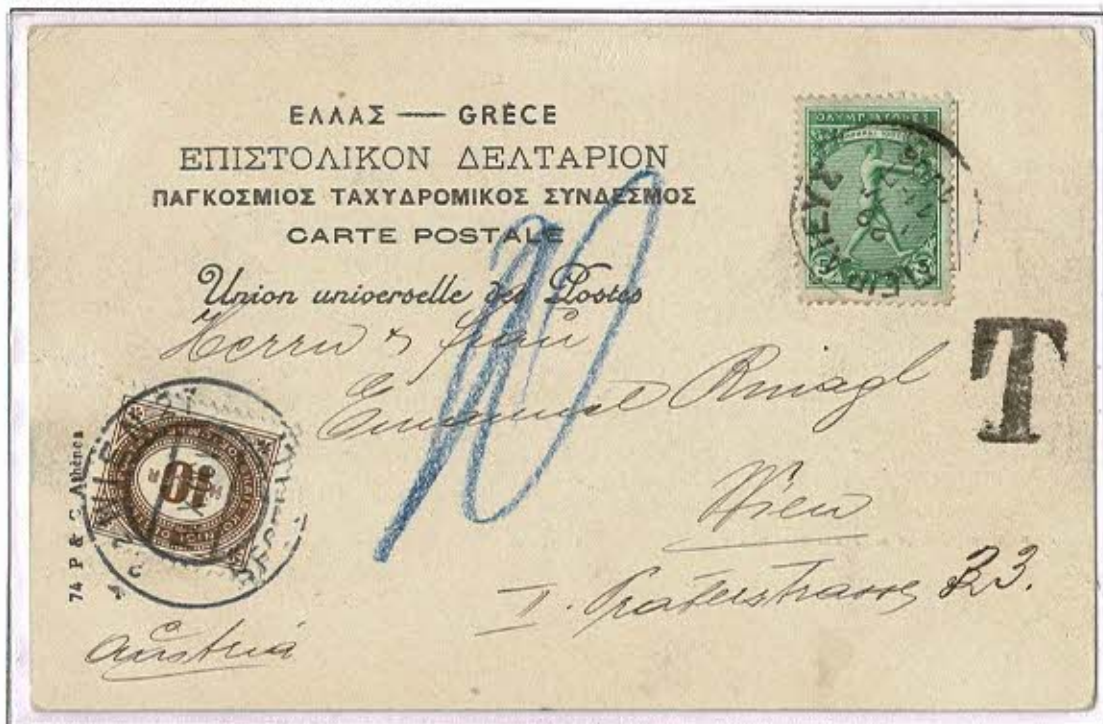 ΕΛΛΑΣ — GRÈCE
ΕΠΙΣΤΟΛΙΚΟΝ ΔΕΛΤΑΡΙΟΝ
ΠΑΓΚΟΣΜΙΟΣ ΤΑΧΥΔΡΟΜΙΚΟΣ ΣΥΝΔΕΣΜΟΣ
CARTE POSTALE
Union universelle des Postes
ΟΛΥΜΠ
5
ΠΕΙΡΑΙΕΥΣ
T
10
Herrn & Frau
Emanuel
Wien
II. Praterstrasse 33.
Austria
10
74 P & C. Athènes